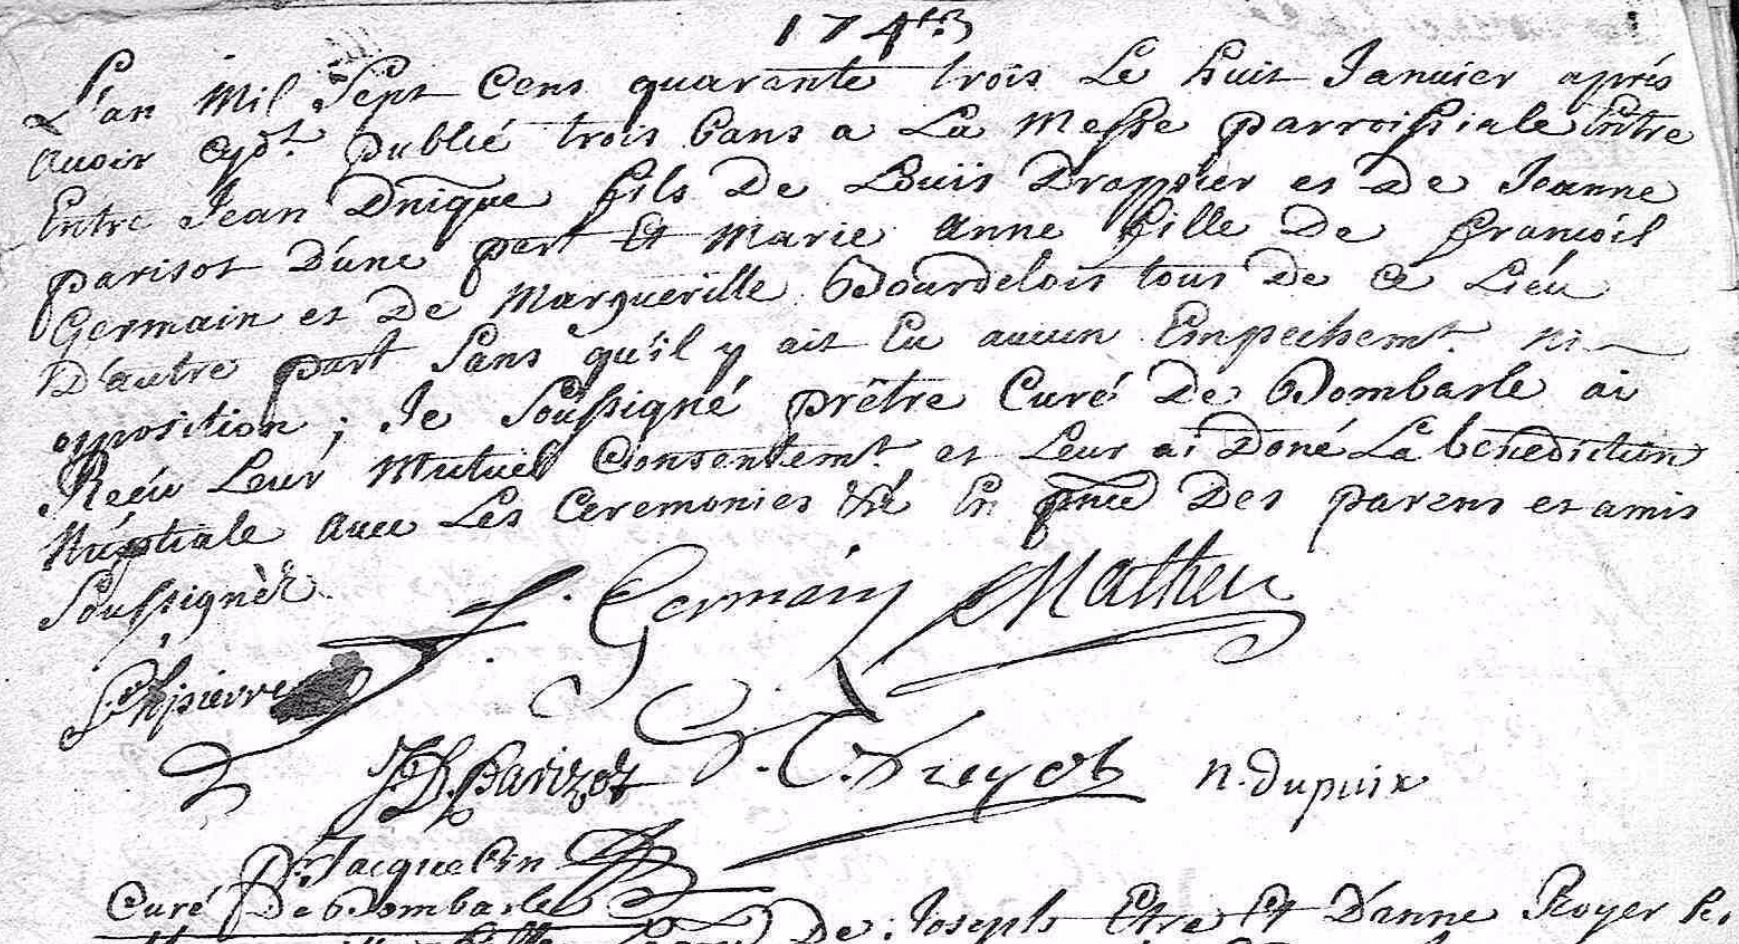 1743
L'an Mil Sept Cens quarante trois Le huit Januier aprés
auoir cydt. publié trois bans a La Messe parroissiale Entre
Entre Jean Dnique fils De Loüis Drappier et De Jeanne
parisot D'úne part Et Marie Anne fille De françois
Germain et De Margueritte Bourdelois tous De Ce Liéu
D'autre part Sans qu'il y ait Eu aucun Empechemt. ni
opposition ; Je Soussigné prêtre Curé De Dombasle ai
Reçéu Leur Mutuel Consentemt. et Leur ai Doné La benediction
Núptiale auec Les Ceremonies En pnce Des parens et amis
Soussignèz
f. Germain Matheu
J D Parizot n. Dupuix
Pr Jacquelin
Curé De Dombasle
De Joseph Et D'anne Royer